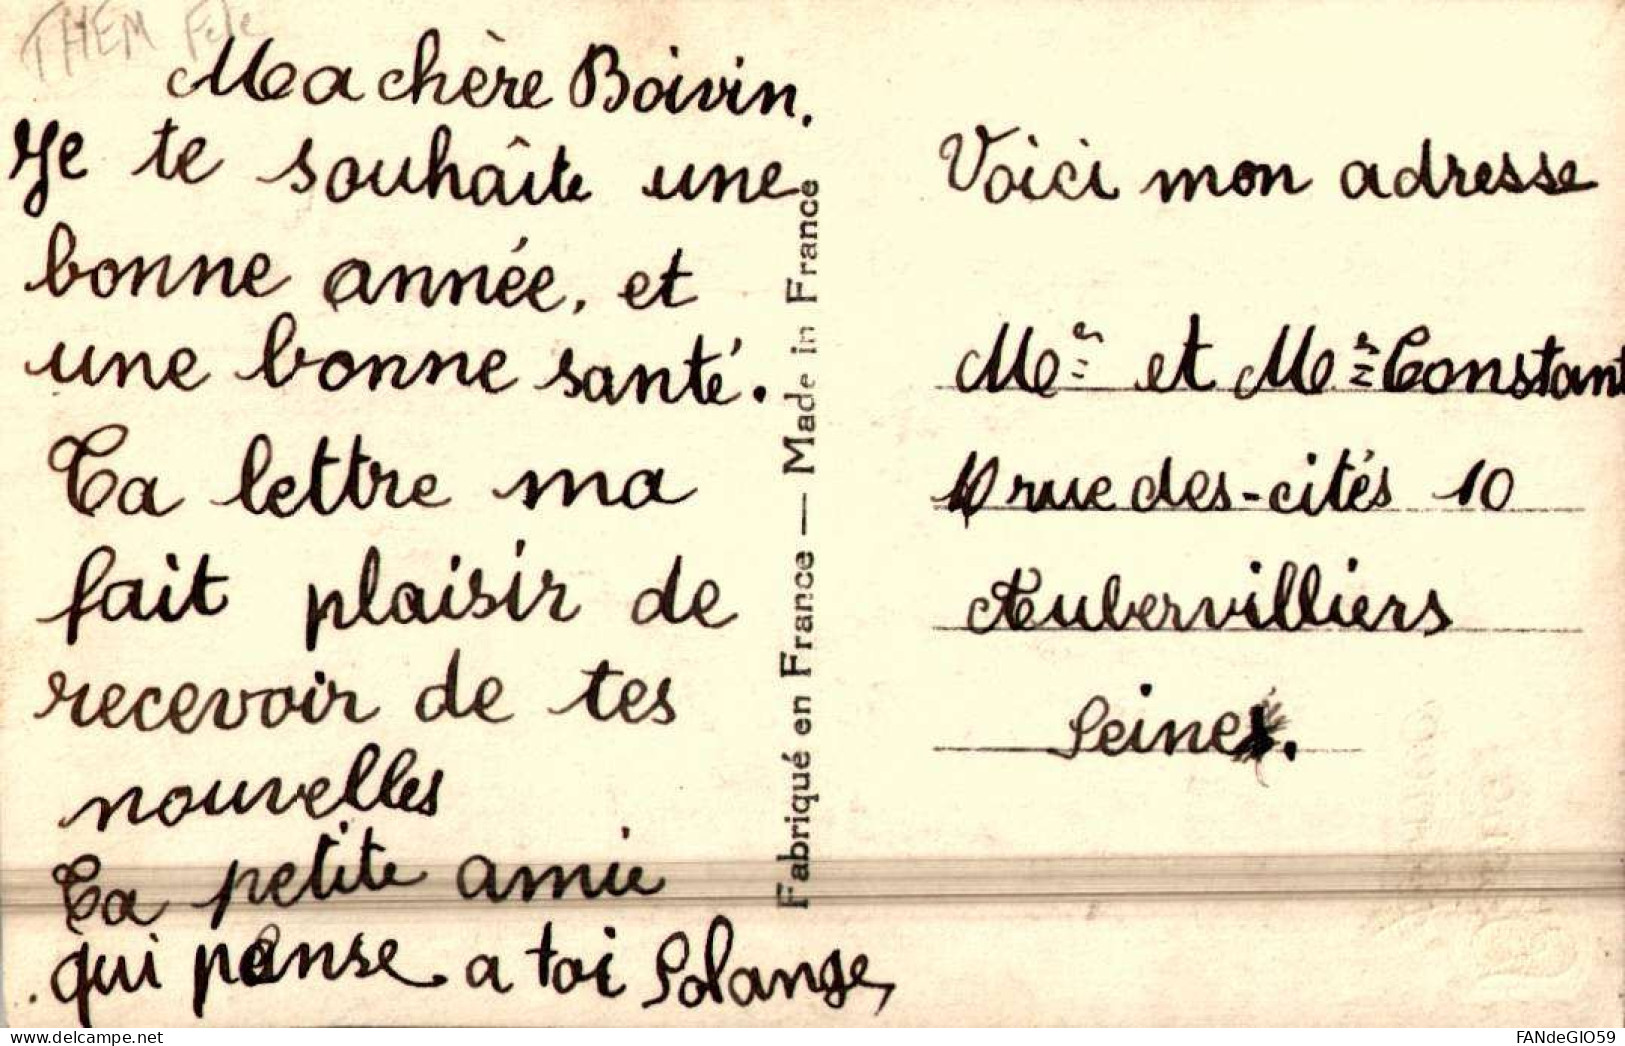 THEM Fete
Ma chère Boivin.
Je te souhaite une
bonne année, et
une bonne santé.
Ta lettre ma
fait plaisir de
recevoir de tes
nouvelles
Ta petite amie
qui pense a toi Solange,
Fabriqué en France — Made in France
Voici mon adresse
Me et Mr Constant
10 rue des-cités 10
Aubervilliers
Seine.
www.delcampe.net
FANdeGIO59